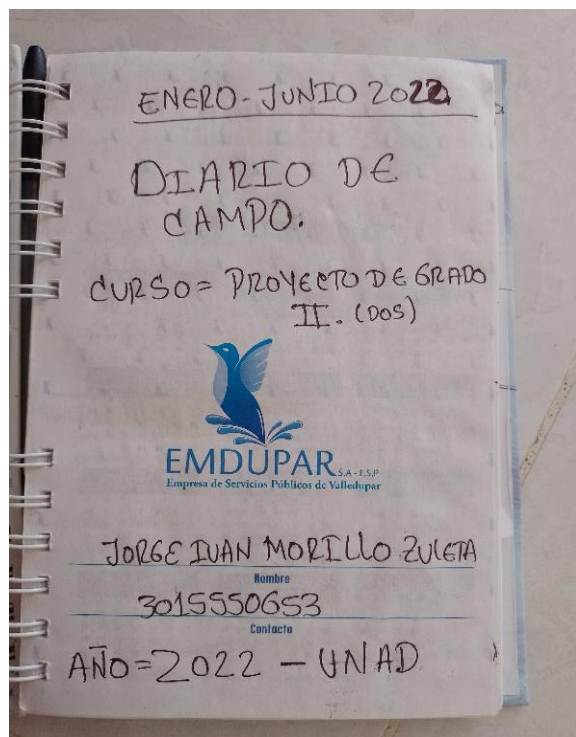 ENERO-JUNIO 2022
DIARIO DE
CAMPO.
CURSO= PROYECTO DE GRADO
II. (DOS)
EMDUPAR S.A - E.S.P
Empresa de Servicios Públicos de Valledupar
JORGE IVAN MORILLO ZULETA
Nombre
3015550653
Contacto
AÑO=2022 - UNAD